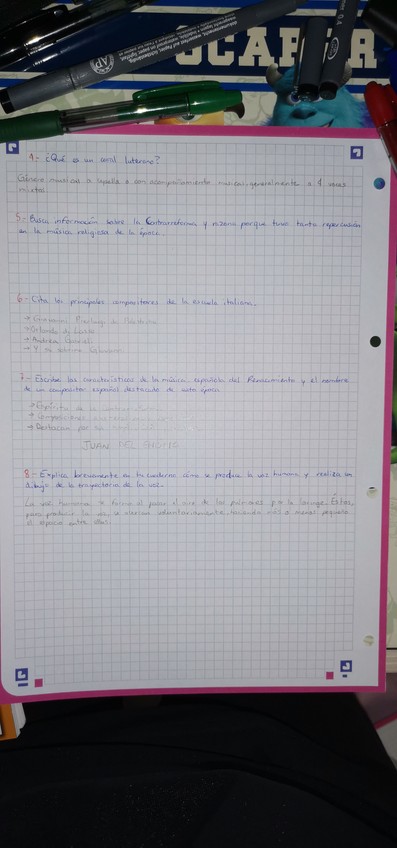 OSCAR
4- ¿Qué es un coral luterano?
Género musical a capella o con acompañamiento musical, generalmente a 4 voces
mixtas.
5- Busca información sobre la Contrarreforma y razona porque tuvo tanta repercusión
en la música religiosa de la época.
6- Cita los principales compositores de la escuela italiana.
→ Giovanni Pierluigi da Palestrina
→ Orlando di Lasso
→ Andrea Gabrieli
7- Escribe las características de la música española del Renacimiento y el nombre
de un compositor español destacado de esta época.
→ Espíritu de la
→ Composiciones
→ Destacan por
JUAN DEL ENCINA
8- Explica brevemente en tu cuaderno cómo se produce la voz humana y realiza un
dibujo de la trayectoria de la voz.
La voz humana se forma al pasar el aire de los pulmones por la laringe. Estas,
para producir la voz, se acercan voluntariamente, haciendo más o menos pequeño
el espacio entre ellas.